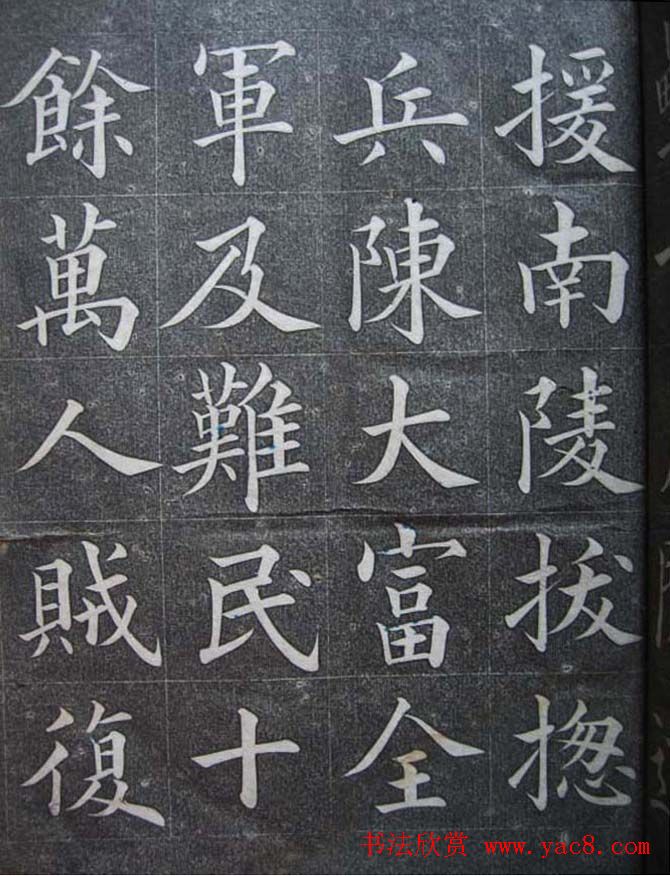 援南陵拔揔
兵陳大富全
軍及難民十
餘萬人賊復
书法欣赏 www.yac8.com